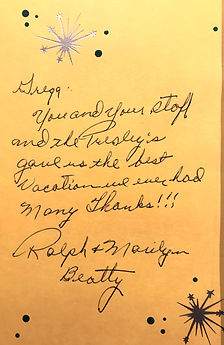 Gregg:
You and Your Staff
and the Presley's
gave us the best
Vacation we ever had
Many Thanks!!!
Ralph & Marilynn
Beatty